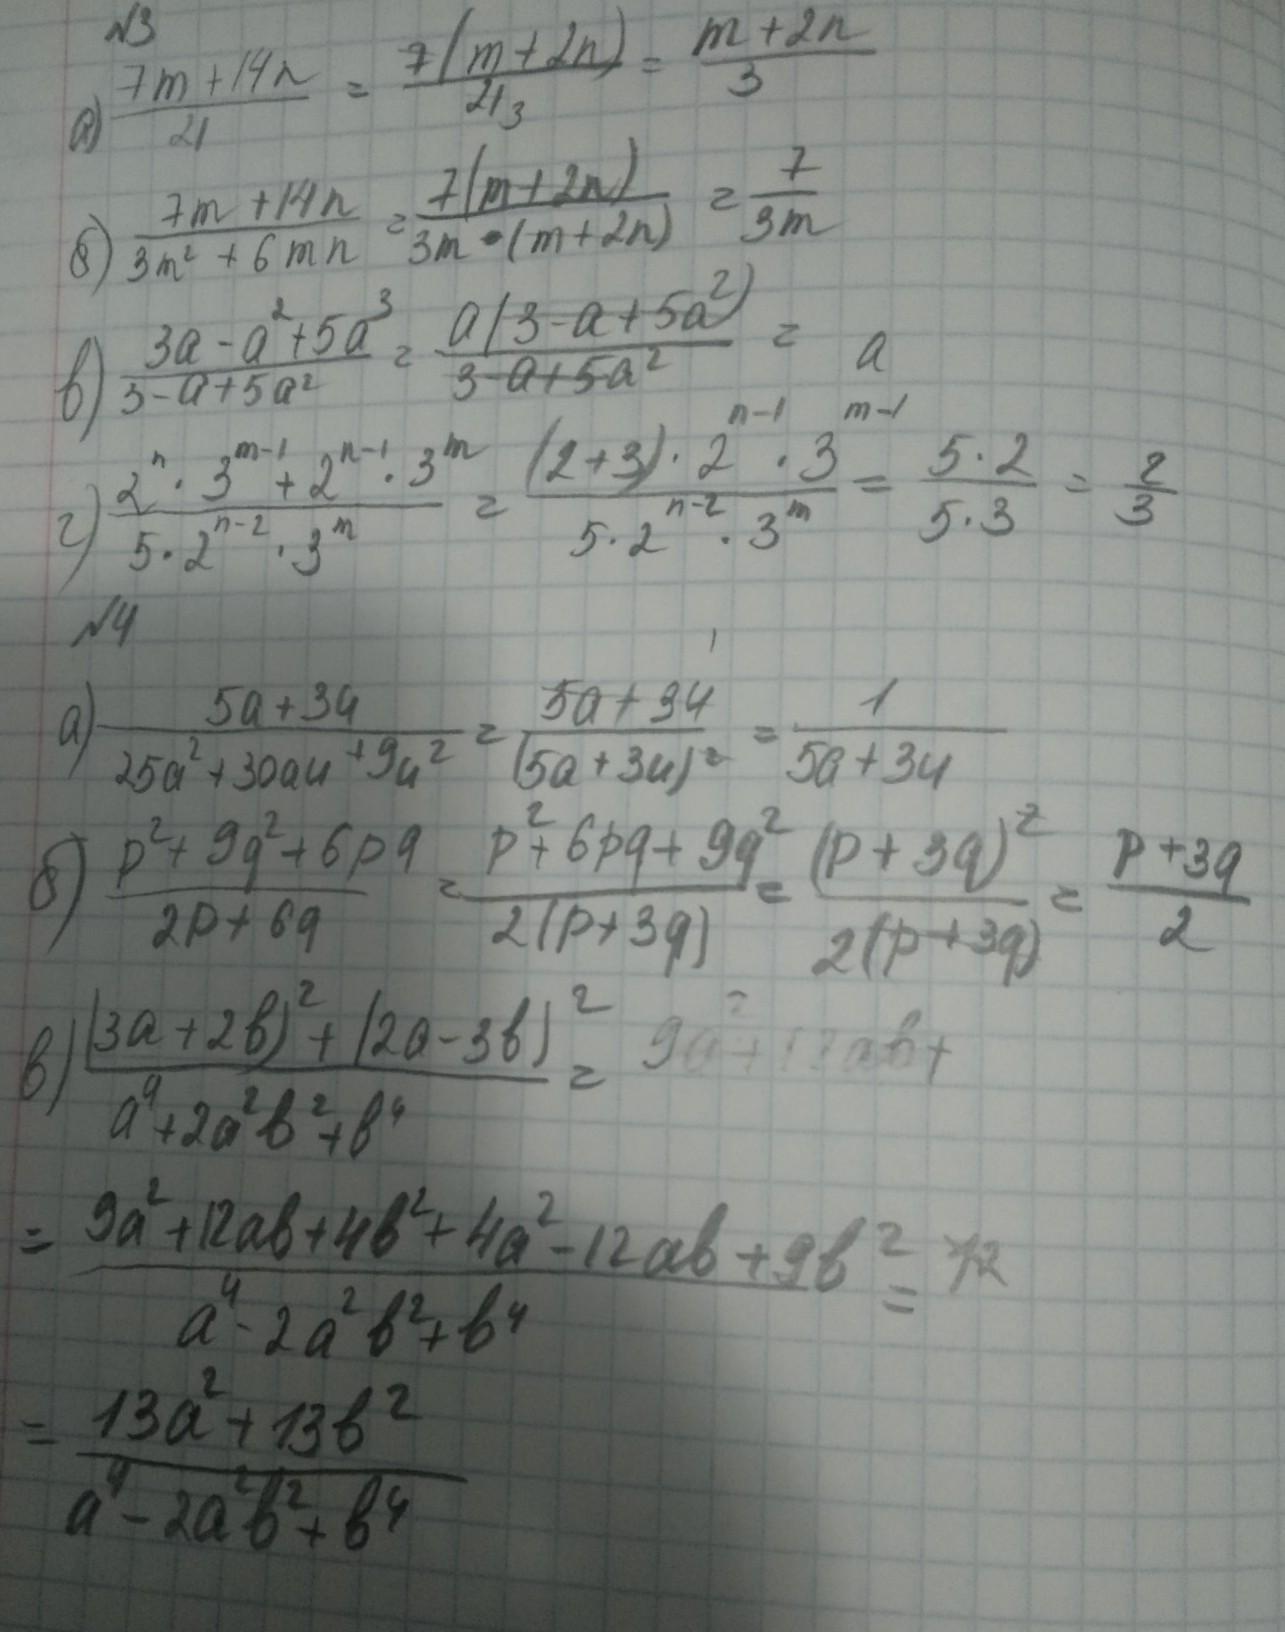 №3
а) (7m+14n)/21 = 7(m+2n)/21 3 = (m+2n)/3
б) (7m+14n)/(3m²+6mn) = 7(m+2n)/(3m·(m+2n)) = 7/(3m)
в) (3a-a²+5a³)/(3-a+5a²) = a(3-a+5a²)/(3-a+5a²) = a
г) (2ⁿ·3ᵐ⁻¹+2ⁿ⁻¹·3ᵐ)/(5·2ⁿ⁻²·3ᵐ) = ((2+3)·2ⁿ⁻¹·3ᵐ⁻¹)/(5·2ⁿ⁻²·3ᵐ) = (5·2)/(5·3) = 2/3
№4
а) (5a+3u)/(25a²+30au+9u²) = (5a+3u)/(5a+3u)² = 1/(5a+3u)
б) (p²+9q²+6pq)/(2p+6q) = (p²+6pq+9q²)/(2(p+3q)) = (p+3q)²/(2(p+3q)) = (p+3q)/2
в) ((3a+2b)²+(2a-3b)²)/(a⁴+2a²b²+b⁴) = 9a²+12ab+
= (9a²+12ab+4b²+4a²-12ab+9b²)/(a⁴-2a²b²+b⁴) =
= (13a²+13b²)/(a⁴-2a²b²+b⁴)